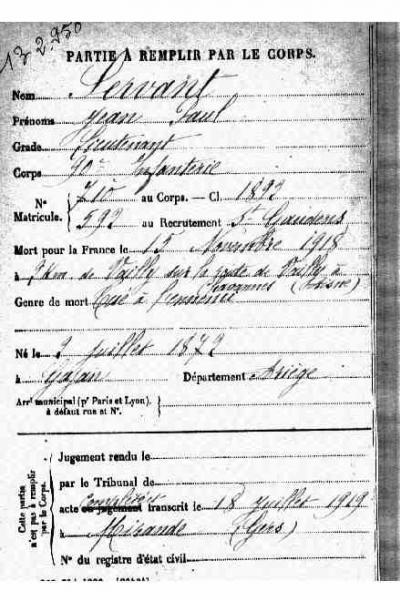 13 2.950
PARTIE À REMPLIR PAR LE CORPS.
Nom Servant
Prénoms Jean Paul
Grade Lieutenant
Corps 90e Infanterie
N° Matricule. 710 au Corps. — Cl. 1892
592 au Recrutement St Gaudens
Mort pour la France le 15 Novembre 1915
à 2km de Vailly sur la route de Vailly à
Chavonnes (Aisne)
Genre de mort Tué à l'ennemi
Né le 2 juillet 1872
à Département Ariège
Arrt municipal (pr Paris et Lyon),
à défaut rue et N°.
Cette partie n'est pas à remplir par le Corps.
Jugement rendu le
par le Tribunal de
acte ou jugement transcrit le 18 juillet 1919
à Mirande (Gers)
N° du registre d'état civil